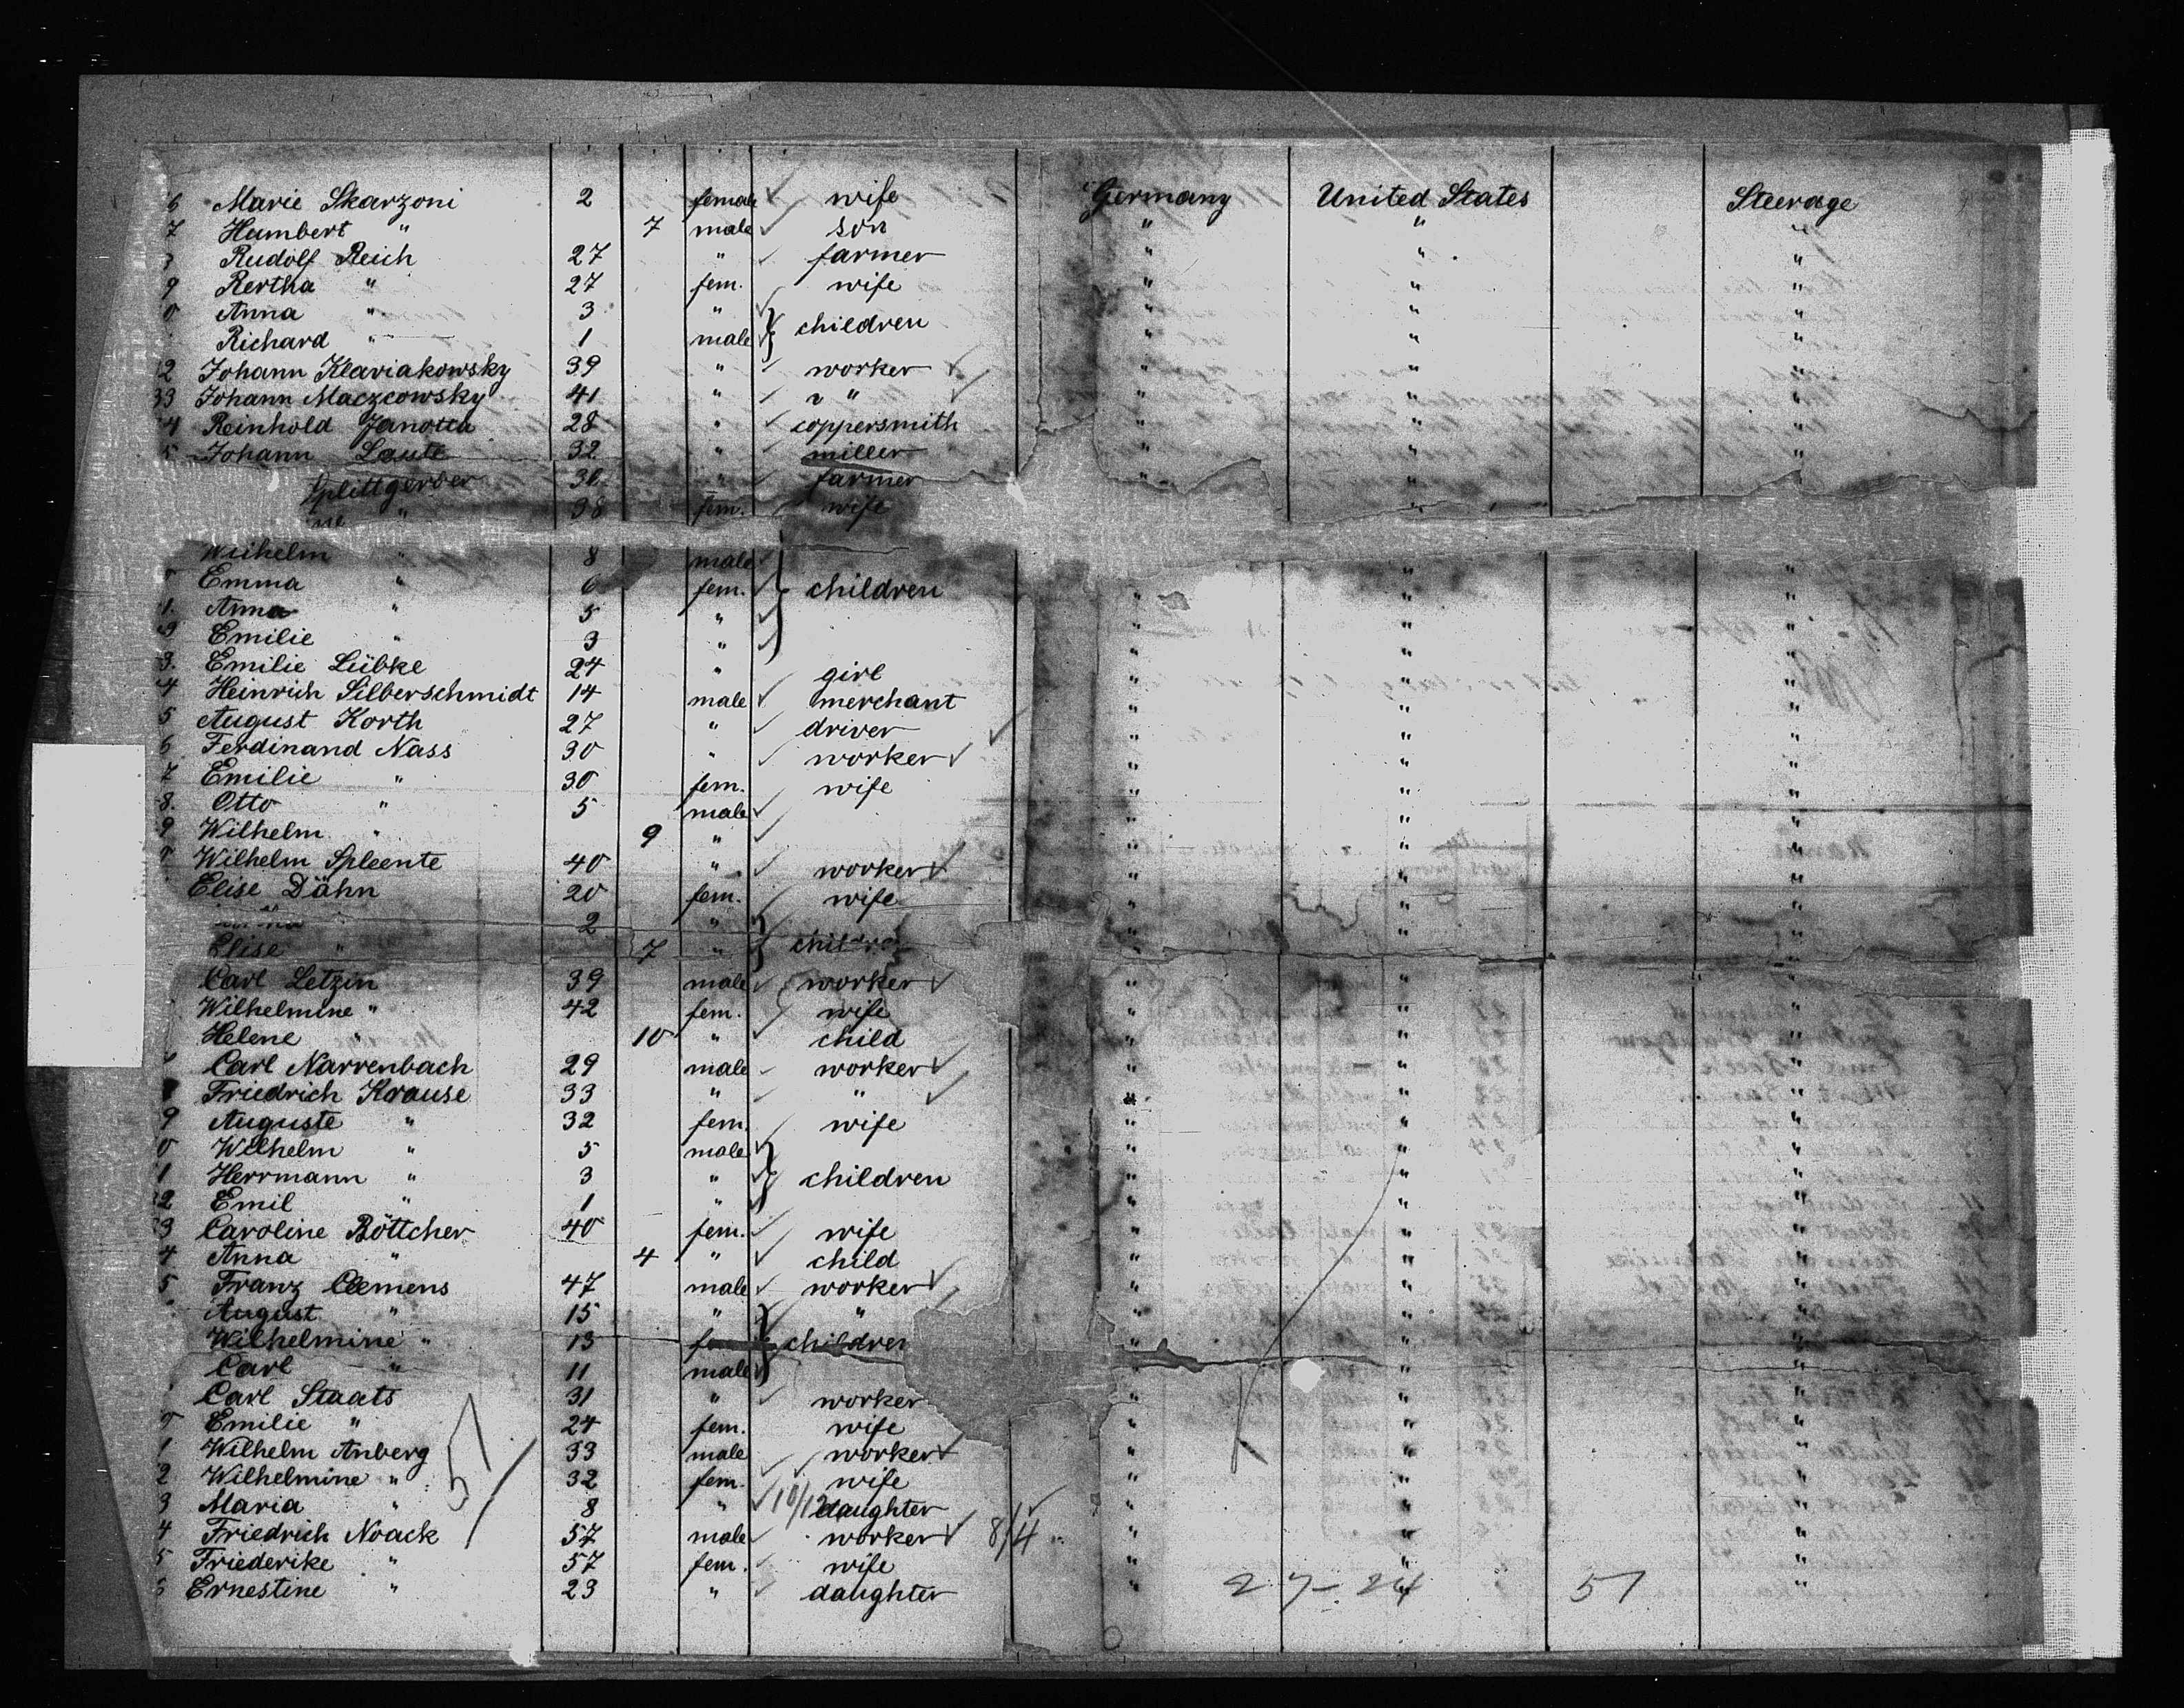 6 Marie Skarzoni 2 female wife Germany United States Steerage
7 Humbert " 7 male son " " "
Rudolf Reich 27 " farmer " " "
9 Rertha " 27 fem. wife " " "
0 Anna " 3 " children " " "
Richard " 1 male " " "
2 Johann Klaviakowsky 39 " worker " " "
33 Johann Maczcowsky 41 " " " " "
4 Reinhold Janotta 28 " coppersmith " " "
5 Johann Laute 32 " miller " " "
Splittgerber 36 " farmer " " "
ne " 38 fem. wife " "
Wilhelm " 8 male " "
Emma " 6 fem. children " " "
1. Anna " 5 " " " "
Emilie " 3 " " " "
3. Emilie Lübke 24 " girl " " "
4 Heinrich Silberschmidt 14 male merchant " " "
5 August Korth 27 " driver " " "
6 Ferdinand Nass 30 " worker " " "
7 Emilie " 30 fem. wife " " "
8. Otto " 5 male " " "
9 Wilhelm " 9 " " " "
0 Wilhelm Spleente 40 " worker " " "
Elise Dähn 20 fem. wife " " "
2 " " " "
Elise " 7 " children
Carl Letzin 39 male worker " " "
Wilhelmine " 42 fem. wife " " "
Helene " 10 " child " " "
Carl Narrenbach 29 male worker " " "
Friedrich Krause 33 " " " " "
9 Auguste " 32 fem. wife " " "
0 Wilhelm " 5 male " " "
1 Herrmann " 3 " children " " "
2 Emil " 1 " " " "
3 Caroline Böttcher 40 fem. wife " " "
4 Anna " 4 " child " " "
5 Franz Clemens 47 male worker " " "
August " 15 " " " " "
Wilhelmine " 13 children " " "
Carl " 11 male " "
Carl Staats 31 " worker " " "
0 Emilie " 24 fem. wife " " "
1 Wilhelm Anberg 33 male worker " " "
2 Wilhelmine " 32 fem. wife " " "
3 Maria " 8 " 10/12 daughter " " "
4 Friedrich Noack 57 male worker 8/4 " " "
5 Friederike " 57 fem. wife " " "
Ernestine " 23 " daughter " " "
51
27 - 24 51